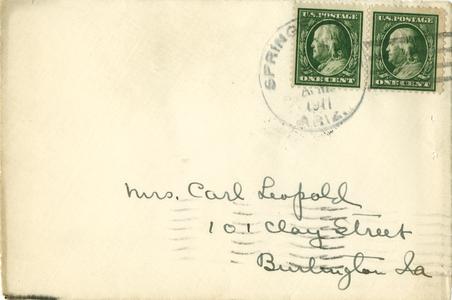 U.S. POSTAGE U.S. POSTAGE
ONE CENT ONE CENT
SPRING
1911
ARIZ.
Mrs. Carl Leopold
101 Clay Street
Burlington Ia